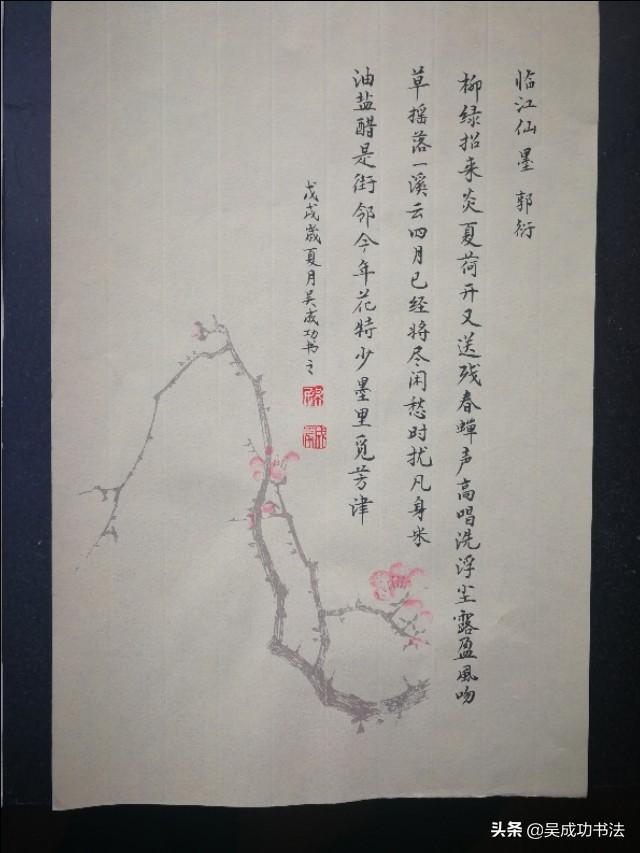 临江仙 墨 郭衍
柳绿招来炎夏荷开又送残春蝉声高唱洗浮尘露盈风吻
草摇落一溪云四月已经将尽闲愁时扰凡身米
油盐醋是街邻今年花特少墨里觅芳津
戊戌岁夏月吴成功书之
头条 @吴成功书法